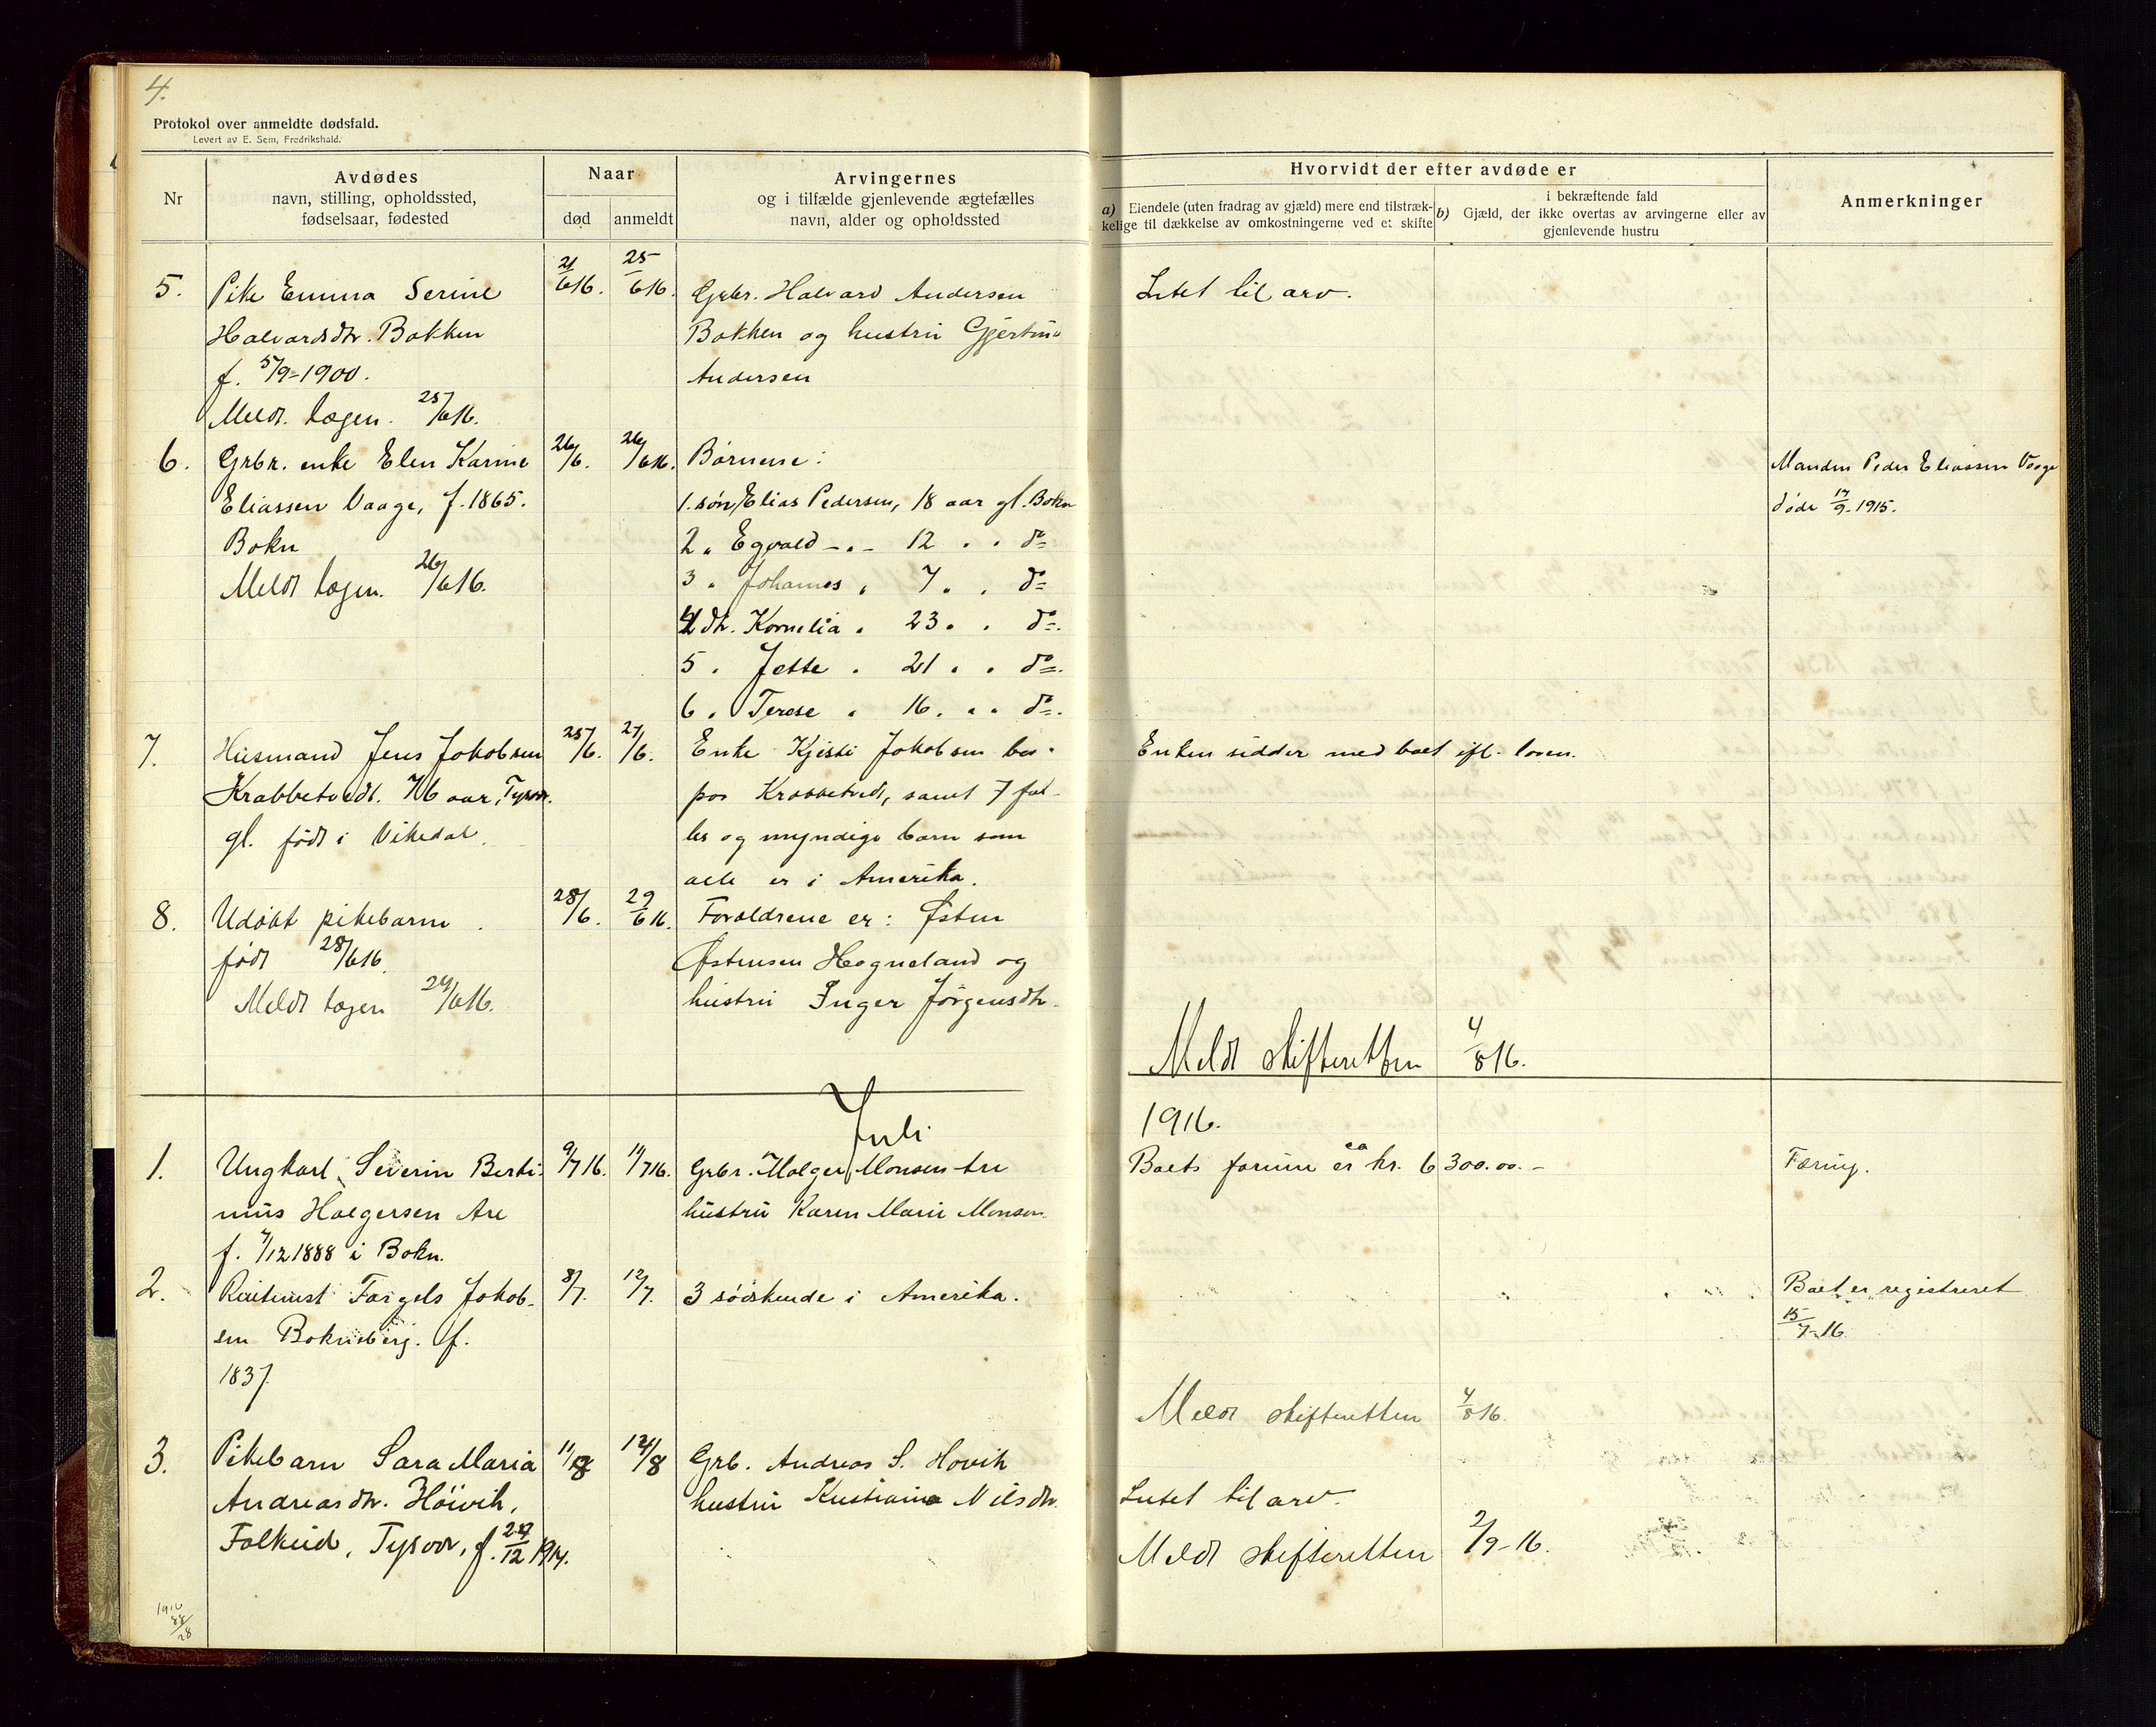 4.
Protokol over anmeldte dødsfald.
Levert av E. Sem, Fredrikshald.
Nr
Avdødes
navn, stilling, opholdssted,
fødselsaar, fødested
Naar
død
anmeldt
Arvingernes
og i tilfælde gjenlevende ægtefælles
navn, alder og opholdssted
Hvorvidt der efter avdøde er
a) Eiendele (uten fradrag av gjæld) mere end tilstræk-
kelige til dækkelse av omkostningerne ved et skifte
i bekræftende fald
b) Gjæld, der ikke overtas av arvingerne eller av
gjenlevende hustru
Anmerkninger
5. Pike Emma Serine 21/6 16. 25/6 16. Grbr. Halvard Andersen Intet til arv.
Halvardsdtr. Bokken Bokken og hustru Gjertine
f. 5/9-1900. Andersen
Meldt lægen. 25/6 16.
6. Grbr. enke Elen Karine 26/6. 26/6 16. Børnene: Manden Peder Eliassen Vaage
Eliassen Vaage, f. 1865. 1. søn Elias Pedersen, 18 aar gl. Bokn døde 17/9-1915.
Bokn 2 " Egvald -"- 12 " " do
Meldt lægen. 26/6 16. 3 " Johannes " 7 " " do
4 dtr. Kornelia " 23 " " do.
5 " Jette " 21 " " do.
6 " Terese " 16 " " do.
7. Husmand Jens Jokobsen 25/6. 27/6. Enke Kjisti Jokobsen bo- Enken sidder med boet ifl. loven.
Krabbetvedt. 76 aar, Tysvær. paa Krabbetvedt, samt 7 ful-
gl. født i Vikedal. le og myndige barn som
alle er i Amerika.
8. Udøbt pikebarn 28/6. 29/6 16. Foraldrene er: Østen
født 28/6 16. Østensen Hogneland og
Meldt lægen 29/6 16. hustru Inger Jørgensdtr.
Meldt skifteretten 4/8 16.
Juli 1916.
1. Ungkarl Severin Berti- 9/7 16. 11/7 16. Grbr. Holger Monsen Are Boets formue er ca kr. 6300.00.- Færing.
nius Holgersen Are hustru Karen Marie Monsen.
f. 7/12 1888 i Bokn.
2. Fargels Jokob- 8/7. 12/7. 3 søskende i Amerika. " " " " Boet er registreret
sen Bokneberg. f. 15/7-16.
1837
Meldt skifteretten 4/8 16.
3. Pikebarn Sara Maria 11/8 14/8 Grb. Andreas S. Hovik
Andreasdtr. Höivik, hustru Kristiane Nilsdtr. Intet til arv.
Falkeid, Tysvær, f. 27/12 1914. Meldt skifteretten 2/9-16.
1916
88/28